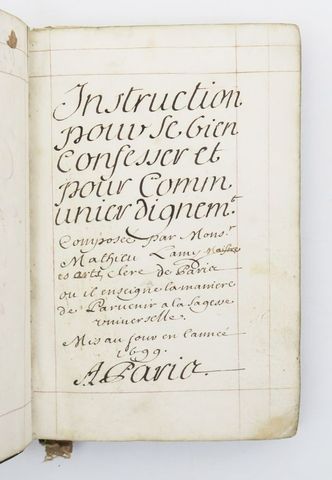 Instruction
pour se bien
Confesser et
pour Comm
unier dignem.t
Composée par Mons.r
Mathieu Lamy Maistre
es arts, Clerc de Paris
ou il enseigne la maniere
de Parvenir a la sagesse
universelle.
Mis au jour en l'année
1699.
A Paris